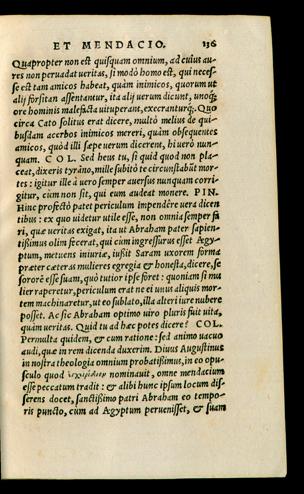 ET MENDACIO. 136
Quapropter non est quisquam omnium, ad cuius au-
res non peruadat ueritas, si modò homo est, qui neces-
se est tam amicos habeat, quàm inimicos, quorum ut
alij forsitan assentantur, ita alij uerum dicunt, unoq́;
ore hominis malefacta uituperant, execranturq́;. Quo
circa Cato solitus erat dicere, multò melius de qui-
busdam acerbos inimicos mereri, quàm obsequentes
amicos, quòd illi sæpe uerum dicerent, hi uerò nun-
quam. COL. Sed heus tu, si quid quod non pla-
ceat, dixeris tyrãno, mille subitò te circunstabũt mor-
tes: igitur ille à uero semper auersus nunquam corri-
gitur, cùm non sit, qui eum audeat monere. PIN.
Hinc profectò patet periculum impendêre uera dicen
tibus: ex quo uidetur utile esse, non omnia semper fa
ri, quæ ueritas exigat, ita ut Abraham pater sapien-
tissimus olim fecerat, qui cùm ingressurus esset Aegy-
ptum, metuens iniuriæ, iussit Saram uxorem forma
præter cæteras mulieres egregia & honesta, dicere, se
sororē esse suam, quò tutior ipse foret: quoniam si mu
lier raperetur, periculum erat ne ei unus aliquis mor-
tem machinaretur, ut eo sublato, illa alteri iure nubere
posset. Ac sic Abraham optimo uiro pluris fuit uita,
quàm ueritas. Quid tu ad hæc potes dicere? COL.
Permulta quidem, & cum ratione: sed animo uacuo
audi, quæ in rem dicenda duxerim. Diuus Augustinus
in nostra theologia omnium probatissimus, in eo opu-
sculo quod nominauit, omne mendacium
esse peccatum tradit: & alibi hunc ipsum locum dis-
serens docet, sanctissimo patri Abraham eo tempo-
ris puncto, cùm ad Aegyptum peruenisset, & suam